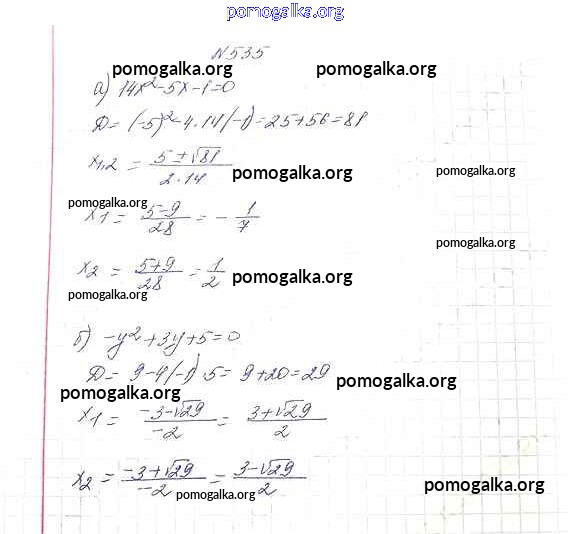 pomogalka.org
N535
pomogalka.org pomogalka.org
а) 14x²-5x-1=0
D= (-5)²-4·14(-1)=25+56=81
x1,2 = 5±√81/2·14
pomogalka.org pomogalka.org
pomogalka.org
x1 = 5-9/28 = -1/7
pomogalka.org
x2 = 5+9/28 = 1/2
pomogalka.org
pomogalka.org
б) -y²+3y+5=0
D= 9-4(-1)·5= 9+20=29
pomogalka.org pomogalka.org
x1 = -3-√29/-2 = 3+√29/2
x2 = -3+√29/-2 = 3-√29/2
pomogalka.org pomogalka.org